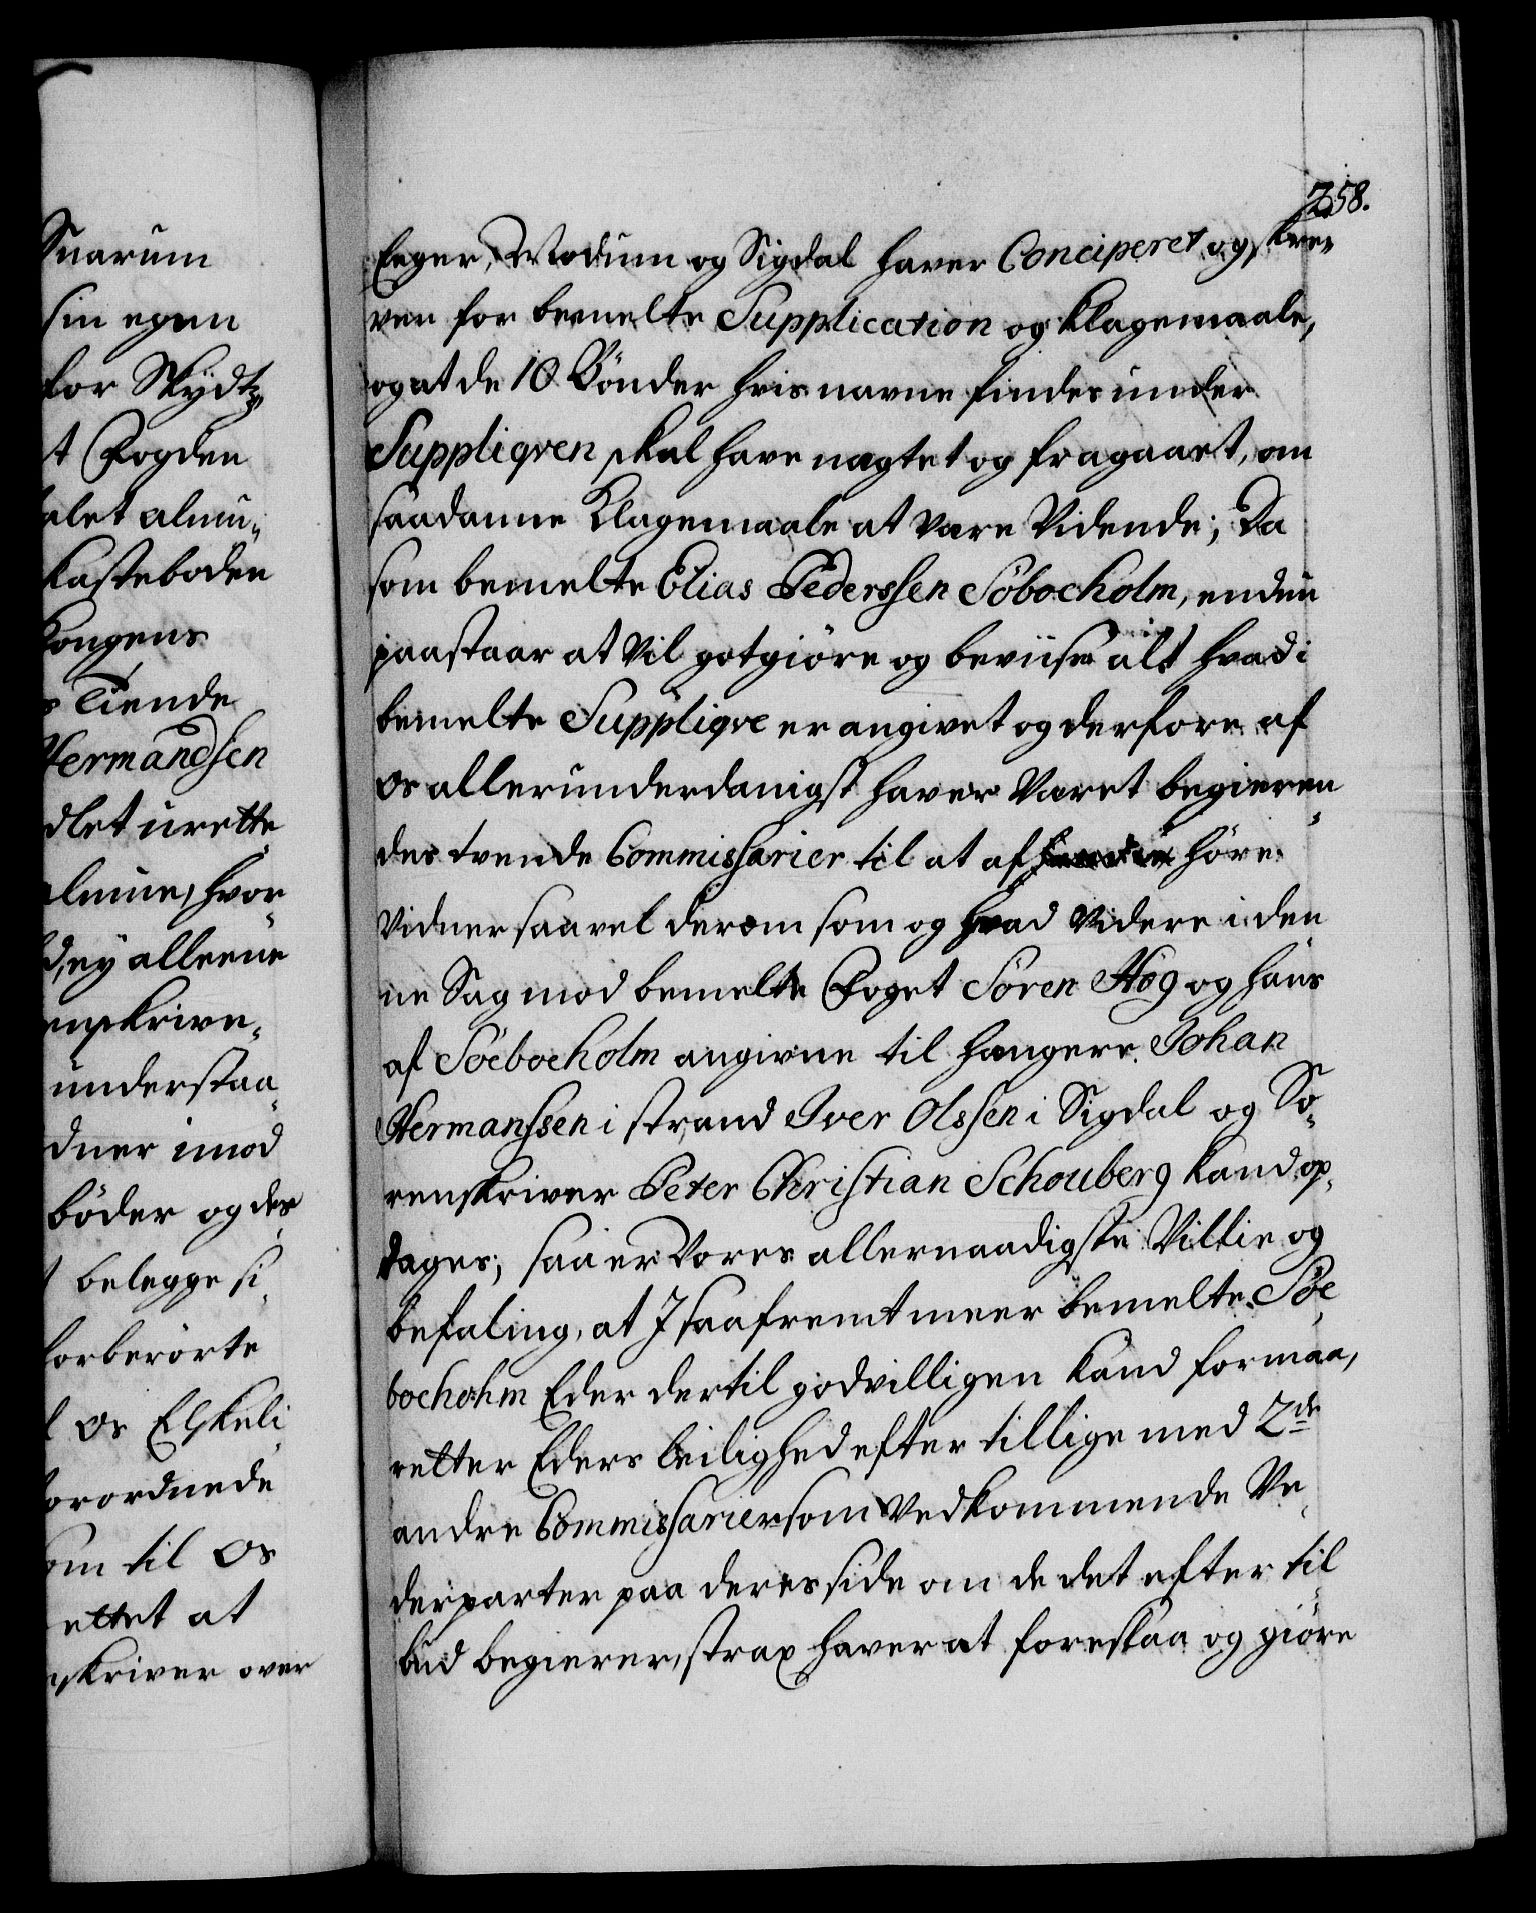 Suarum
sin egen
for Skydtz
t Fogden
alet almu-
Kasteboden
Kongens
s Tiende
Hermandsen
dlet urette
lmue, hvor
d, ey alleene
enskrive-
understaa
dner imod
bøder og des
belegge si
forberørte
l os Elskeli
forordnede
om til os
ettet at
nskriver over
258.
Eeger, Modum og Sigdal haver Conciperet og skre-
ven for bemelte Supplication og Klagemaale,
og at de 10 Bønder hvis navne findes under
Suppliqven skal have nægtet og fragaaet, om
saadanne Klagemaale at være Vidende; Da
som bemelte Elias Pederssen Söbocholm, endnu
paastaar at vil gotgiöre og beviise alt hvad i
bemelte Suppliqve er angivet og derfore af
os allerunderdanigst haver Været begieren-
des tvende Commissarier til at af höre
Vidner saavel derom som og hvad Videre i den
ne Sag mod bemelte Foget Sören Høg og hans
af Söebocholm angivne til hængere Johan
Hermanssen i strand Iver Olssen i Sigdal og So-
renskriver Peter Christian Schouberg kand op-
dages; saa er Vores allernaadigste Villie og
befaling, at I saafremt meer bemelte Söe
bocholm Eder dertil godvilligen kand formaa,
retter Eders leilighed efter tillige med 2de
andre Commissarier som Vedkommende Ve-
derparter paa deres side om de det efter til
bud begierer, strax haver at foreslaa og giöre